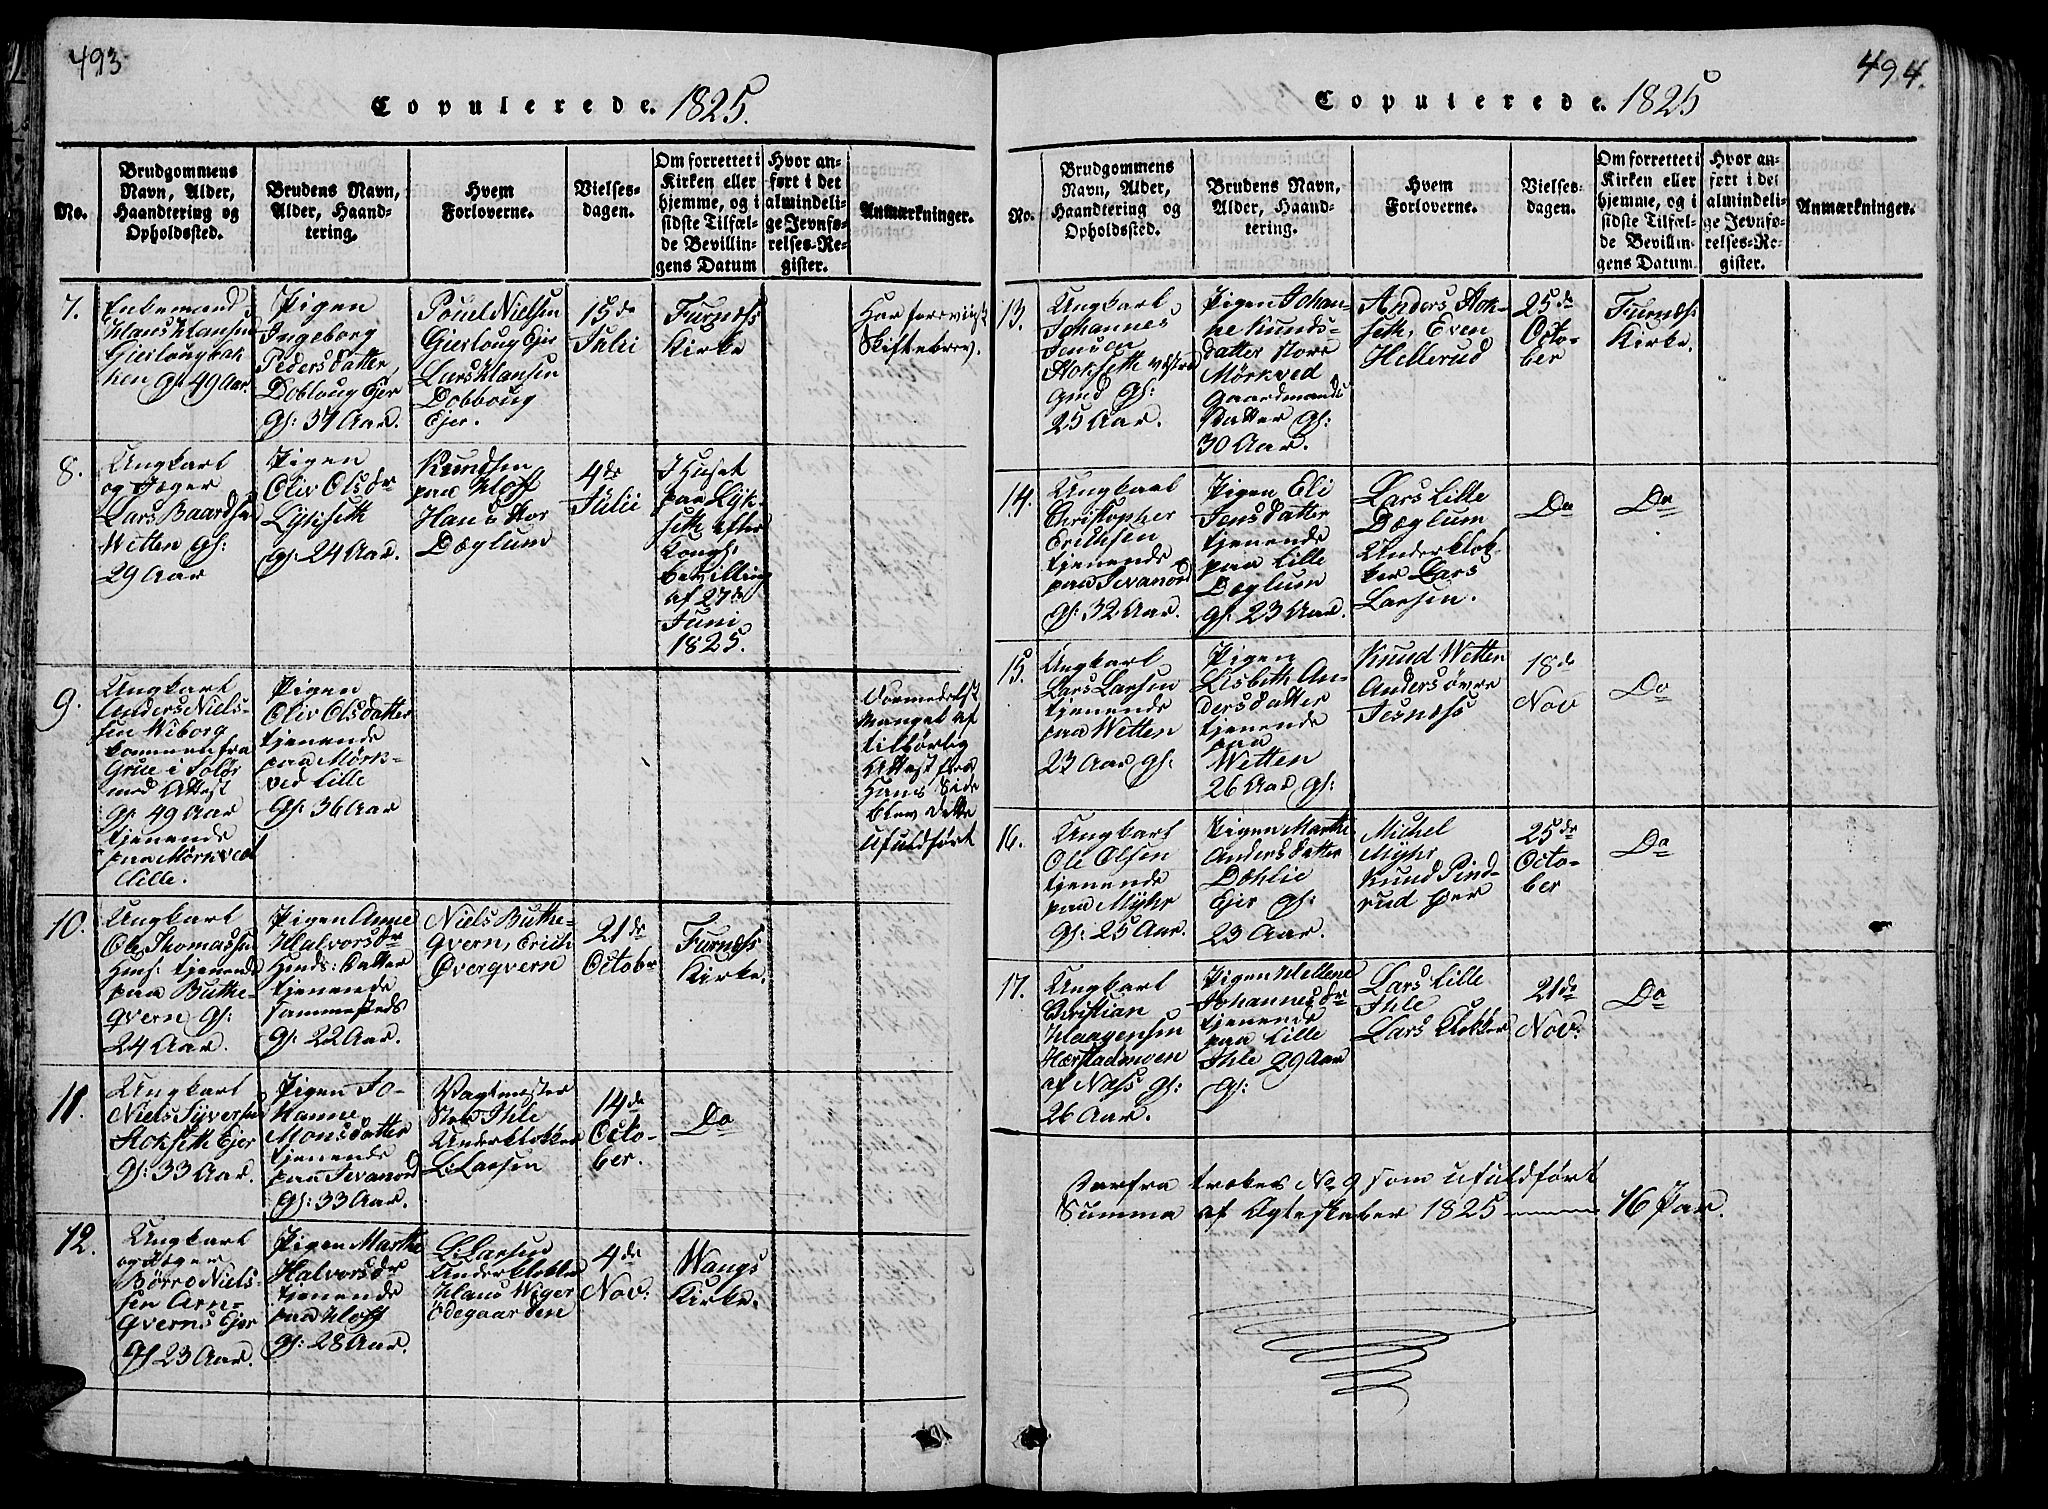 493
Copulerede. 1825.
No.
Brudgommens
Navn, Alder,
Haandtering og
Opholdssted.
Brudens Navn,
Alder, Haand-
tering.
Hvem
Forloverne.
Vielses-
dagen.
Om forrettet i
Kirken eller
hjemme, og i
sidste Tilfæl-
de Bevillin-
gens Datum
Hvor an-
ført i det
almindeli-
ge Jevnfø-
relses-Re-
gister.
Anmærkninger.
7.
Enkemand
Hans Hansen
Gieslougbak
ken Gl: 49 Aar.
Pigen
Ingeborg
Peders datter,
Dobloug Ejer
Gl: 37 Aar.
Pouel Nielsen
Giesloug Ejer
Lars Hansen
Dobboug
Ejer.
15de
Julii
Furnæss
Kirke
Har foreviist
Skiftebrev.
8.
Ungkarl
og Jæger
Lars Baardsen
Wetten gl:
29 Aar
Pigen
Oliv Olsdr
Lykseth
gl: 24 Aar.
Kundsen
paa Hoff
Hans Stor
Dæglum
4de
Julii
I Huset
paa Lyk-
seth efter
Kongl:
bevilling
af 27de
Juni
1825.
9.
Ungkarl
Anders Niels-
sen Wiborg
kommen fra
Grue i Solør
med Attest
Gl: 49 Aar
tjenende
paa Mørkved
Lille.
Pigen
Oliv Olsdatter
tjenende
paa Mørk-
ved Lille
Gl: 36 Aar
Formedelst
Mangel af
tilbørlig
Attest fra
Hans Side
blev dette
ufuldført
10.
Ungkarl
Ole Thomassen
tjenende
paa Buthe-
qvern Gl:
24 Aar.
Pigen Anne
Halvorsdr
Datter
tjenende
sammesteds
Gl: 22 Aar.
Niels Buthe-
qvern, Erich
Overqvern
21de
Octobr
Furnæss
Kirke.
11.
Ungkarl
Niels Syversen
Stokseth Ejer
Gl: 33 Aar.
Pigen Jo-
hanne
Monsdatter
tjenende
paa Jevanord
Gl: 33 Aar.
Vagtmester
Stor Ihle
Underklokker
L: Larsen
14de
Octo-
ber.
Do
12.
Ungkarl
og Jæger
Børre Niels-
sen Arn-
qverns Ejer
Gl 23 Aar.
Pigen Marthe
Halvorsdr
tjenende
paa Hoff
Gl: 28 Aar.
L: Larsen
Underklokker
Hans Wiger
Ødegaarden
4de
Nov:
Wangs
Kirke.
494.
Copulerede. 1825
No.
Brudgommens
Navn, Alder,
Haandtering og
Opholdssted.
Brudens Navn,
Alder, Haand-
tering.
Hvem
Forloverne.
Vielses-
dagen.
Om forrettet i
Kirken eller
hjemme, og i
sidste Tilfæl-
de Bevillin-
gens Datum.
Hvor an-
ført i det
almindeli-
ge Jevnfø-
relses-Re-
gister.
Anmærkninger.
13.
Ungkarl
Johannes
Jensen
Stokseth vestre
gmd Gl:
25 Aar.
Pigen Johan-
ne Kunds-
datter Store
Mørkved
Gaardmands
Datter Gl:
30 Aar.
Anders Stok-
seth, Even
Hellerud
25de
Octo-
ber
Furnæss
Kirke.
14.
Ungkarl
Christopher
Erichsen
tjenende
paa Jevanord
Gl: 32 Aar.
Pigen Eli
Jensdatter
tjenende
paa Lille
Dæglum
Gl: 23 Aar.
Lars Lille
Dæglum
Underklok-
ker Lars
Larsen.
Do
Do
15.
Ungkarl
Lars Larsen
tjenende
paa Wetten
23 Aar gl:
Pigen
Lisbeth An-
dersdatter
tjenende
paa
Wetten
26 Aar gl:
Knud Wetten
Anders øvre
Jesness
18de
Nov
Do
16.
Ungkarl
Ole Olsen
tjenende
paa Myhr
Gl: 25 Aar.
Pigen Marthe
Andersdatter
Dæhlie
Ejer Gl:
23 Aar.
Michel
Myhr
Knud Sind-
rud Ejer
25de
Octo-
ber
Do
17.
Ungkarl
Christian
Haagensen
Hærstadmoen
af Næss Gl:
26 Aar.
Pigen Hellene
Johannesdr
tjenende
paa Lille
Ihle 29 Aar
Gl:
Lars Lille
Ihle
Lars Klokker
21de
Nov:
Do
Herfra trækes No 9 som ufuldført
Summa af Ægteskaber 1825 16 Par.